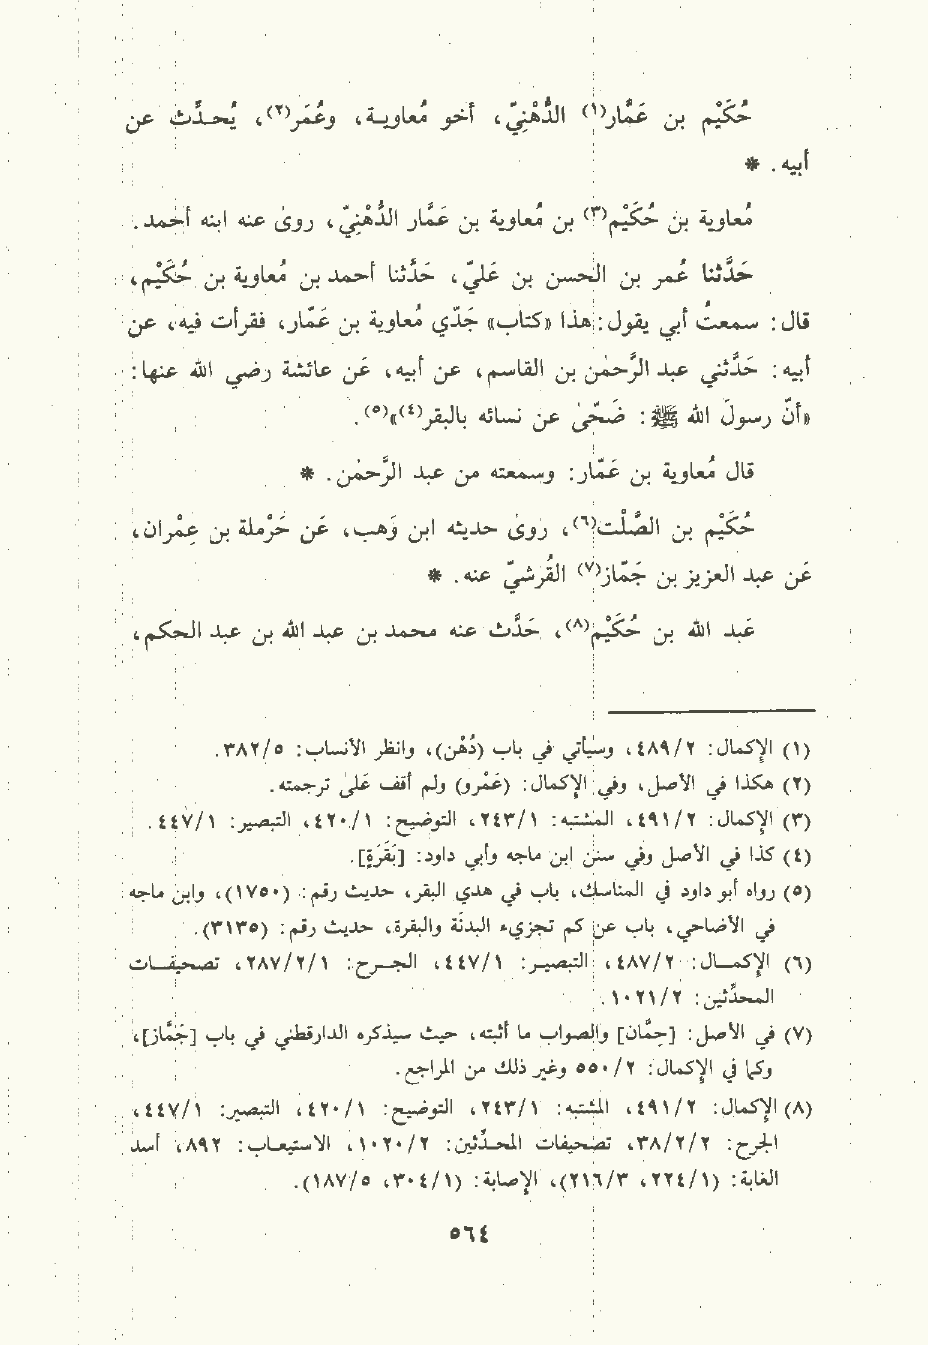 حُكَيْم بن عَمَّار(١) الدُّهْنِيّ، أخو مُعاويـة، وعُمَر(٢)، يُحـدِّث عن
أبيه. *
مُعاوية بن حُكَيْم(٣) بن مُعاوية بن عَمَّار الدُّهْنِيّ، روىٰ عنه ابنه أحمد.
حَدَّثنا عُمر بن الحسن بن عَليّ، حَدَّثنا أحمد بن مُعاوية بن حُكَيْم،
قال: سمعتُ أبي يقول: هذا «كتاب» جَدّي مُعاوية بن عَمّار، فقرأت فيه، عن
أبيه: حَدَّثني عبد الرَّحمٰن بن القاسم، عن أبيه، عَن عائشة رضي الله عنها:
«أنّ رسولَ الله ﷺ: ضَحّىٰ عن نسائه بالبقر(٤)»(٥).
قال مُعاوية بن عَمّار: وسمعته من عبد الرَّحمٰن. *
حُكَيْم بن الصَّلْت(٦)، روىٰ حديثه ابن وَهب، عَن حَرْملة بن عِمْران،
عَن عبد العزيز بن جَمّاز(٧) القُرشيّ عنه. *
عَبد الله بن حُكَيْم(٨)، حَدَّث عنه محمد بن عبد الله بن عبد الحكم،
(١) الإكمال: ٤٨٩/٢، وسيأتي في باب (دُهْن)، وانظر الأنساب: ٣٨٢/٥.
(٢) هكذا في الأصل، وفي الإكمال: (عَمْرو) ولم أقف عَلىٰ ترجمته.
(٣) الإكمال: ٤٩١/٢، المشتبه: ٢٤٣/١، التوضيح: ٤٢٠/١، التبصير: ٤٤٧/١.
(٤) كذا في الأصل وفي سنن ابن ماجه وأبي داود: [بَقَرَةٍ].
(٥) رواه أبو داود في المناسك، باب في هدي البقر، حديث رقم: (١٧٥٠)، وابن ماجه
في الأضاحي، باب عن كم تجزيء البدنَة والبقرة، حديث رقم: (٣١٣٥).
(٦) الإكمـال: ٤٨٧/٢، التبصيـر: ٤٤٧/١، الجـرح: ٢٨٧/٢/١، تصحيفـات
المحدِّثين: ١٠٢١/٢.
(٧) في الأصل: [حِمَّان] والصواب ما أثبته، حيث سيذكره الدارقطني في باب [جَمَّاز]،
وكما في الإكمال: ٥٥٠/٢ وغير ذلك من المراجع.
(٨) الإكمال: ٤٩١/٢، المشتبه: ٢٤٣/١، التوضيح: ٤٢٠/١، التبصير: ٤٤٧/١،
الجرح: ٣٨/٢/٢، تصحيفات المحـدِّثين: ١٠٢٠/٢، الاستيعـاب: ٨٩٢، أسد
الغابة: (٢٢٤/١، ٢١٦/٣)، الإصابة: (٣٠٤/١، ١٨٧/٥).
٥٦٤